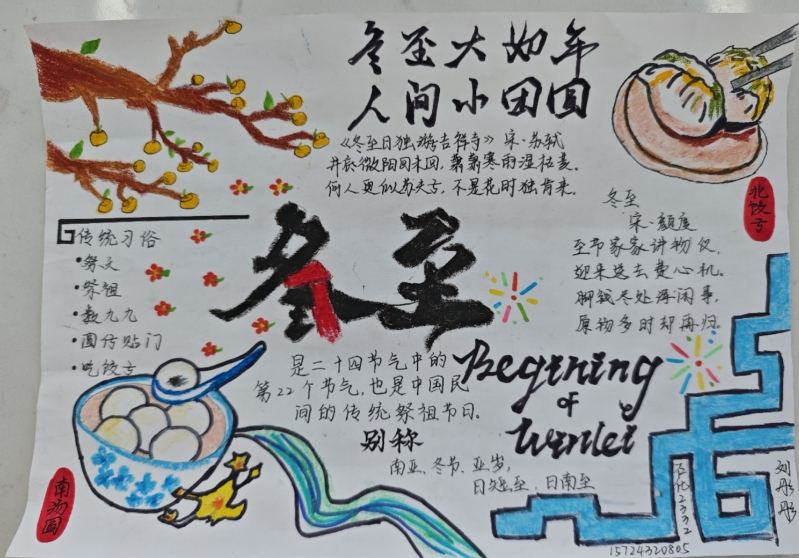 冬至大如年
人间小团圆
《冬至日独游吉祥寺》宋·苏轼
井底微阳回未回，萧萧寒雨湿枯荄。
何人更似苏夫子，不是花时独肯来。
北饺子
冬至
宋·颜度
至节家家讲物仪，
迎来送去费心机。
脚钱尽处浑闲事，
原物多时却再归。
传统习俗
·祭天
·祭祖
·数九九
·画符贴门
·吃饺子
冬至
是二十四节气中的
第22个节气，也是中国民
间的传统祭祖节日。
别称
南亚、冬节、亚岁，
日短至、日南至
Begining
of
winlei
南汤圆
石化2332
刘彤彤
15724320805